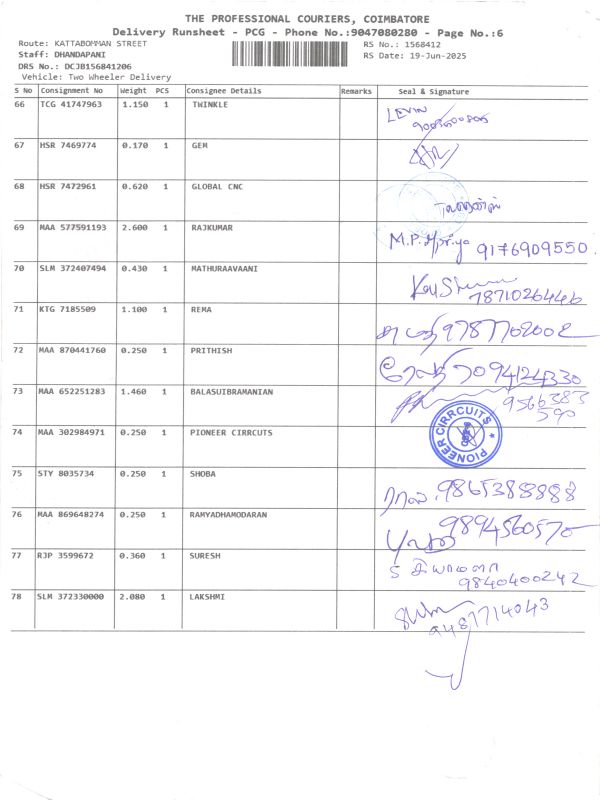 THE PROFESSIONAL COURIERS, COIMBATORE
Delivery Runsheet - PCG - Phone No.:9047080280 - Page No.:6
Route: KATTABOMMAN STREET RS No.: 1568412
Staff: DHANDAPANI RS Date: 19-Jun-2025
DRS No.: DCJB156841206
Vehicle: Two Wheeler Delivery
S No Consignment No Weight PCS Consignee Details Remarks Seal & Signature
66 TCG 41747963 1.150 1 TWINKLE LEVIN
67 HSR 7469774 0.170 1 GEM
68 HSR 7472961 0.620 1 GLOBAL CNC
69 MAA 577591193 2.600 1 RAJKUMAR M.P. 9176909550.
70 SLM 372407494 0.430 1 MATHURAAVAANI
7871026446
71 KTG 7185509 1.100 1 REMA
72 MAA 870441760 0.250 1 PRITHISH
73 MAA 652251283 1.460 1 BALASUIBRAMANIAN 9566383
590
74 MAA 302984971 0.250 1 PIONEER CIRRCUTS PIONEER CIRRCUITS
75 STY 8035734 0.250 1 SHOBA
76 MAA 869648274 0.250 1 RAMYADHAMODARAN 9894560570
77 RJP 3599672 0.360 1 SURESH
9840400242
78 SLM 372330000 2.080 1 LAKSHMI
9487714043